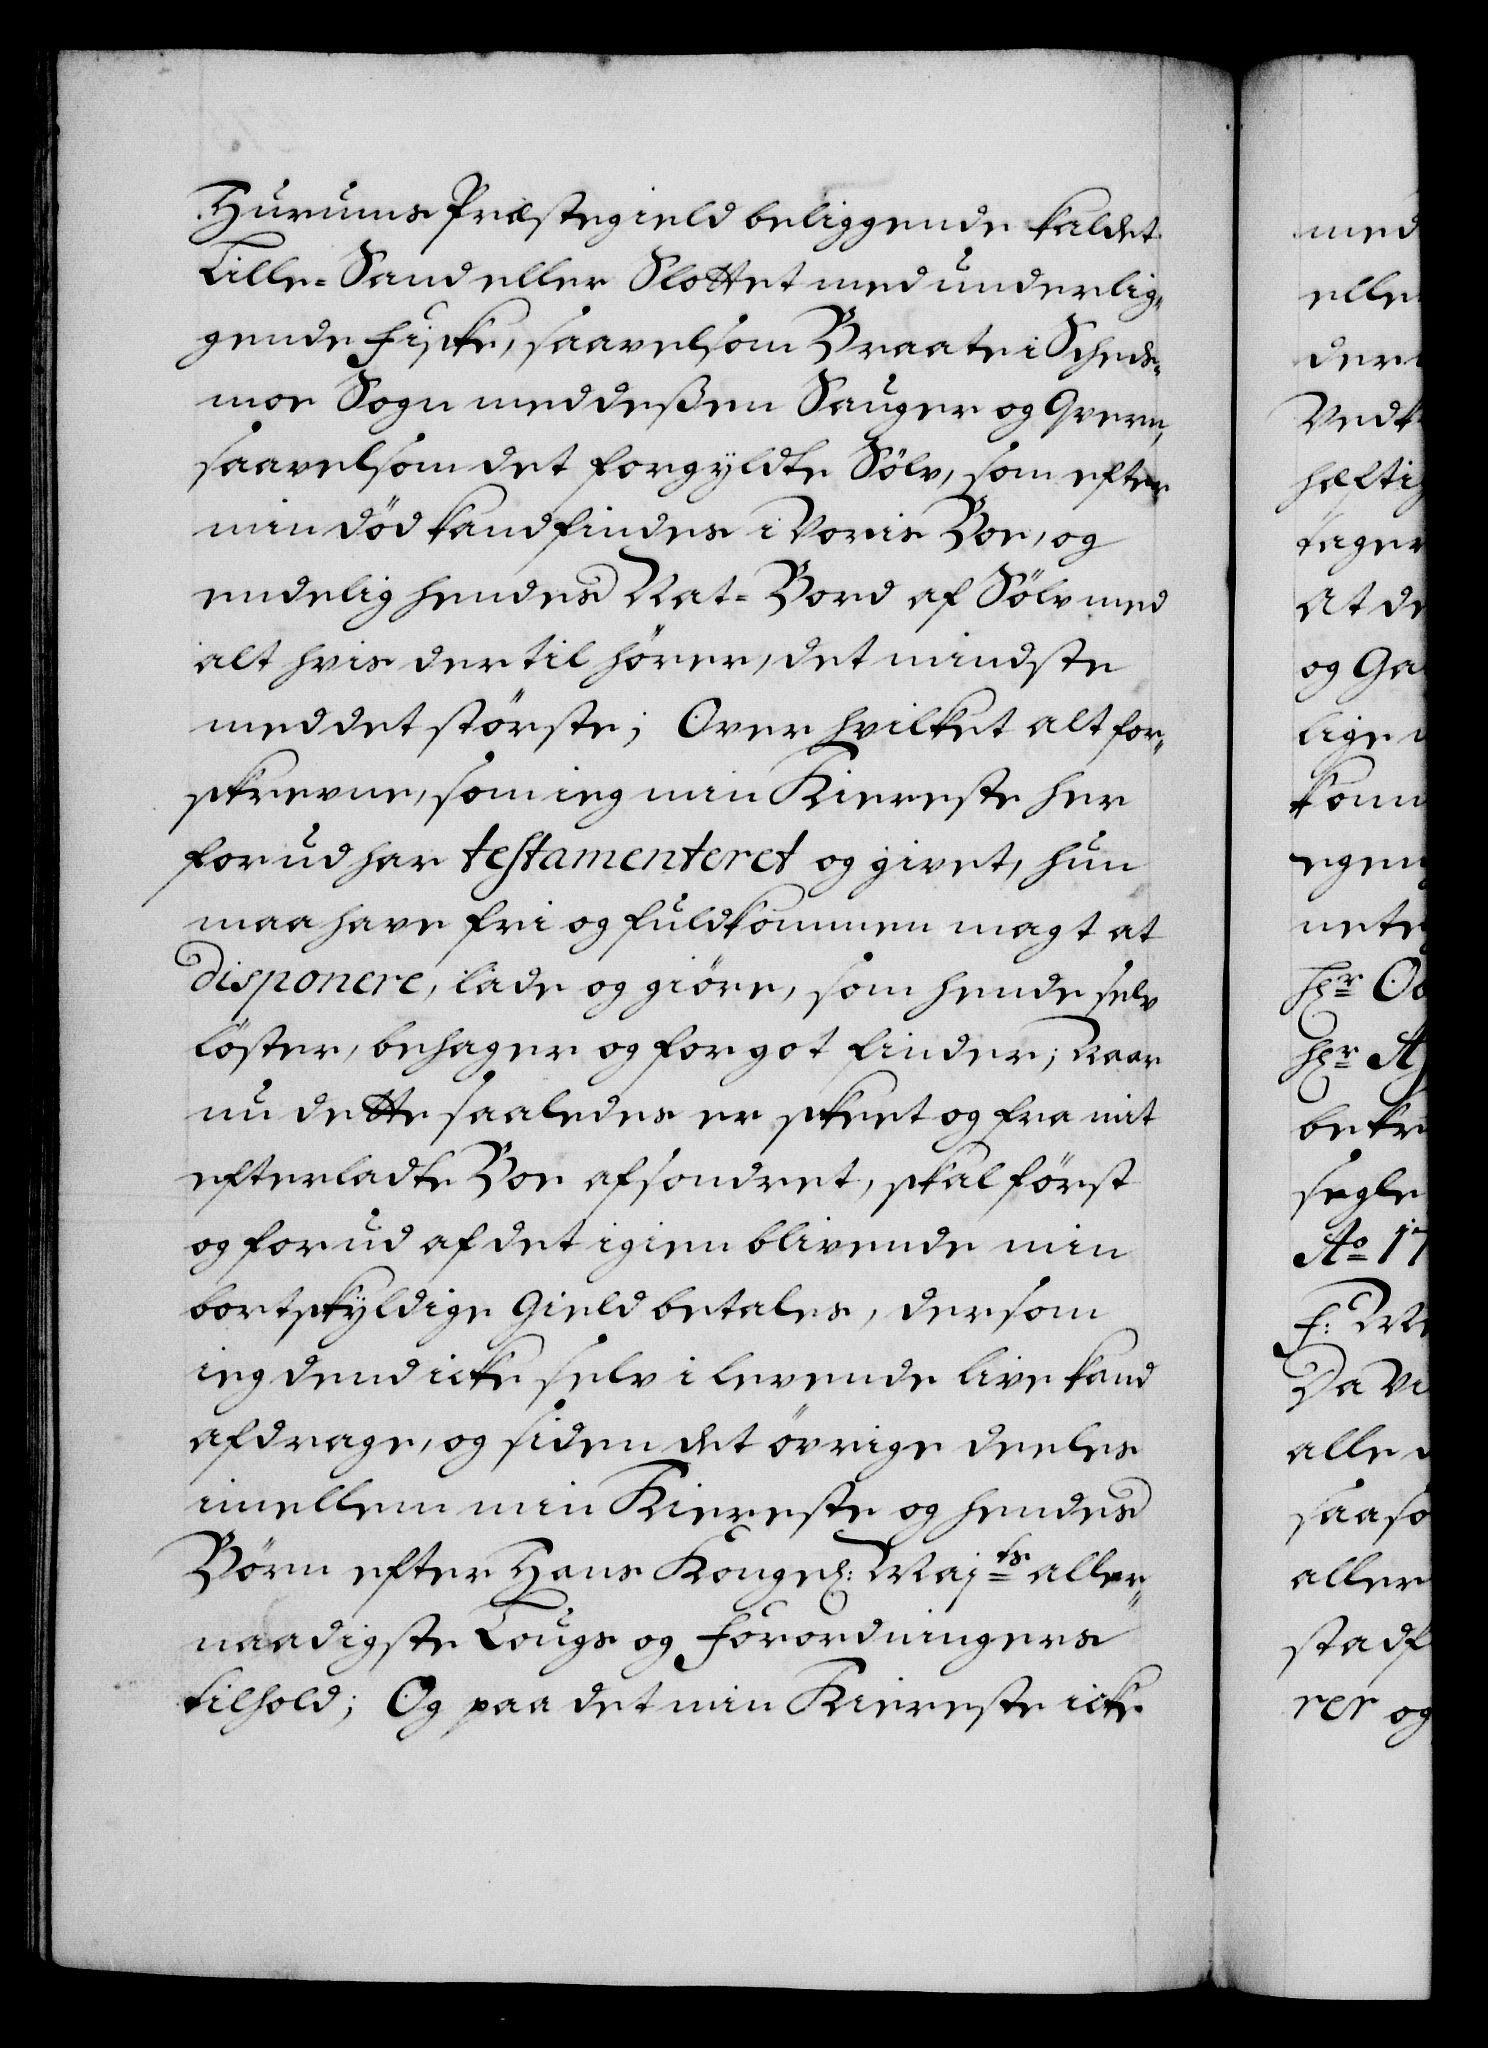 Hurums Præstegield beliggende kaldet
Lille-Sand eller Slottet med underlig-
gende Fiske, saavelsom Braate i Scheds-
moe Sogn med deßen Sauger og Qvern,
saavelsom det forgyldte Sölv, som efter
min död kand findes i Voris Boe, og
endelig hendes Nat-Bord af Sölv med
alt hvis dertil hörer, det mindste
med det störste; Over hvilket alt for-
skrevne, som ieg min Kiereste her
forud har testamenteret og givet, hun
maa have fri og fuldkommen magt at
disponere, lade og giöre, som hende selv
löster, behager og for got finder; Naar
nu dette saaledes er skeet og fra mit
efterladte Boe afsondret, skal först
og forud af det igien blivende min
bortskyldige Gield betales, dersom
ieg dend icke selv i levende live kand
afdrage, og siden det övrige deeles
imellem min Kiereste og hendes
Börn efter Hans Kongel: Majts aller-
naadigste Lougs og Forordningers
tilhold; Og paa det min Kiereste icke
med
elle
der
Vedk
hefti
tager
At de
og Ga
lige
komm
egen
nete
Hr Ob
Hr
bekr
segle
Ao 17
Da Vi
alle
saaso
aller
stadf
rer og